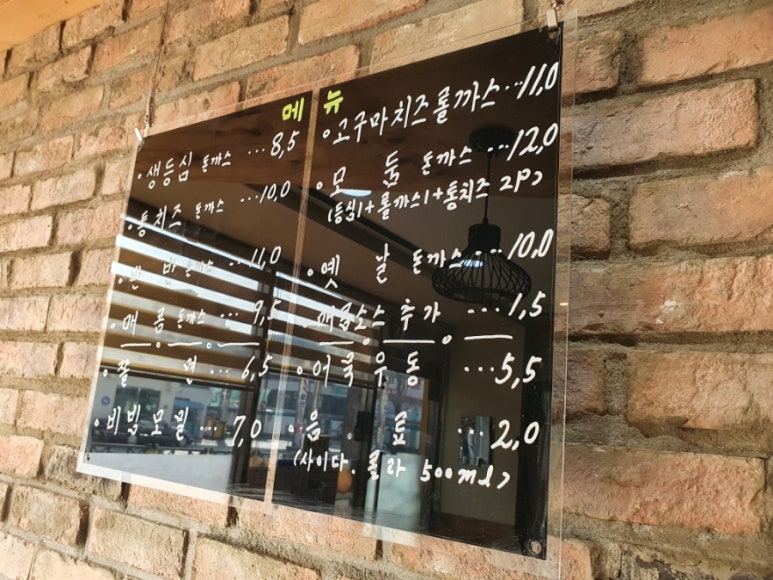 메뉴
• 생등심 돈까스 ... 8,5
• 통치즈 돈까스 ... 10,0
• 반반 돈까스 ... 11,0
• 매콤 돈까스 ... 9,5
• 쫄면 ... 6,5
• 비빔모밀 ... 7,0
• 고구마치즈롤까스 ... 11,0
• 모둠 돈까스 ... 12,0
(등심1+롤까스1+통치즈 2P)
• 옛날 돈까스 ... 10,0
• 매콤소스 추가 ... 1,5
• 어묵우동 ... 5,5
• 음료 ... 2,0
(사이다. 콜라 500ml)